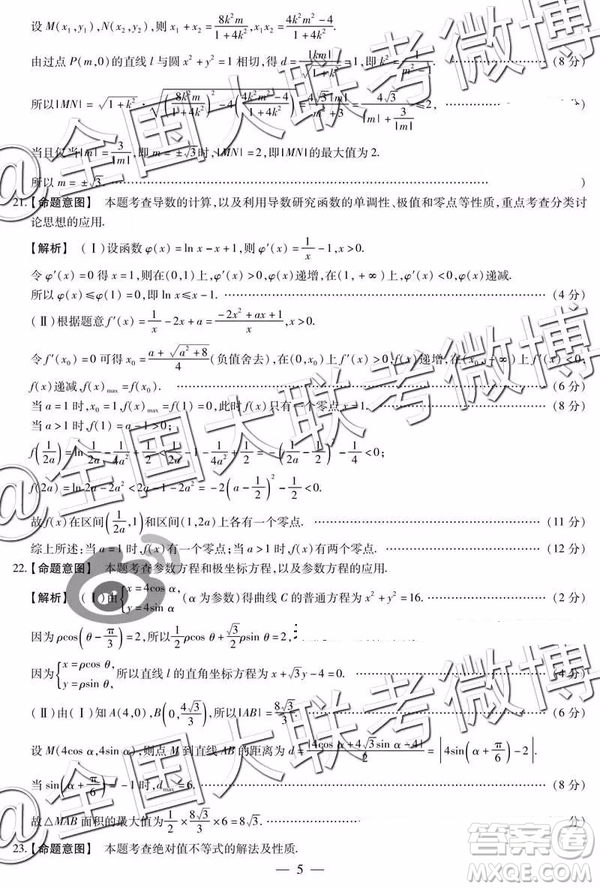 设 M(x₁,y₁),N(x₂,y₂),则 x₁+x₂=8k²m/(1+4k²),x₁x₂=(4k²m²-4)/(1+4k²).
由过点 P(m,0)的直线 l 与圆 x²+y²=1 相切,得 d=|km|/√(1+k²)=1,即 ……(8 分)
所以|MN|=√(1+k²)·√((8k²m/(1+4k²))²-4(4k²m²-4)/(1+4k²))=4√3|m|/(m²+3)=4√3/(|m|+3/|m|)≤2,
当且仅当|m|=3/|m|,即 m=±√3 时,|MN|=2,即|MN|的最大值为 2.
所以 m=±√3.
21.【命题意图】 本题考查导数的计算,以及利用导数研究函数的单调性、极值和零点等性质,重点考查分类讨
论思想的应用.
【解析】 (Ⅰ)设函数 φ(x)=ln x-x+1,则 φ′(x)=1/x-1,x>0.
令 φ′(x)=0 得 x=1,则在(0,1)上,φ′(x)>0,φ(x)递增,在(1,+∞)上,φ′(x)<0,φ(x)递减.
所以 φ(x)≤φ(1)=0,即 ln x≤x-1. ……(4 分)
(Ⅱ)根据题意 f′(x)=1/x-2x+a=(-2x²+ax+1)/x,x>0.
令 f′(x₀)=0 可得 x₀=(a+√(a²+8))/4(负值舍去),在(0,x₀)上 f′(x)>0,f(x)递增,在(x₀,+∞)上 f′(x)<0,
f(x)递减,f(x)max=f(x₀). ……(6 分)
当 a=1 时,x₀=1,f(x)max=f(1)=0,此时 f(x)只有一个零点 x=1. ……(8 分)
当 a>1 时,f(1)=a-1>0,
f(1/2a)=ln 1/2a-1/4a²+1/2<1/2a-1-1/4a²+1/2=-(1/2a-1/2)²-1/4<0;
f(2a)=ln 2a-2a²<2a-1-2a²=-2(a-1/2)²-1/2<0.
故 f(x)在区间(1/2a,1)和区间(1,2a)上各有一个零点. ……(11 分)
综上所述:当 a=1 时,f(x)有一个零点;当 a>1 时,f(x)有两个零点. ……(12 分)
22.【命题意图】 本题考查参数方程和极坐标方程,以及参数方程的应用.
【解析】 (Ⅰ)由{x=4cos α, y=4sin α (α 为参数)得曲线 C 的普通方程为 x²+y²=16. ……(2 分)
因为 ρcos(θ-π/3)=2,所以 1/2 ρcos θ+√3/2 ρsin θ=2.
因为{x=ρcos θ, y=ρsin θ,所以直线 l 的直角坐标方程为 x+√3y-4=0. ……(4 分)
(Ⅱ)由(Ⅰ)知 A(4,0),B(0,4√3/3),所以|AB|=8√3/3. ……(6 分)
设 M(4cos α,4sin α),则点 M 到直线 AB 的距离为 d=|4cos α+4√3sin α-4|/2=|4sin(α+π/6)-2|.
当 sin(α+π/6)=-1 时,d max=6. ……(8 分)
故△MAB 面积的最大值为 1/2×8√3/3×6=8√3.
23.【命题意图】 本题考查绝对值不等式的解法及性质.
— 5 —
@全国大联考微博
@全国大联考微博
@全国大联考微博
答案圈